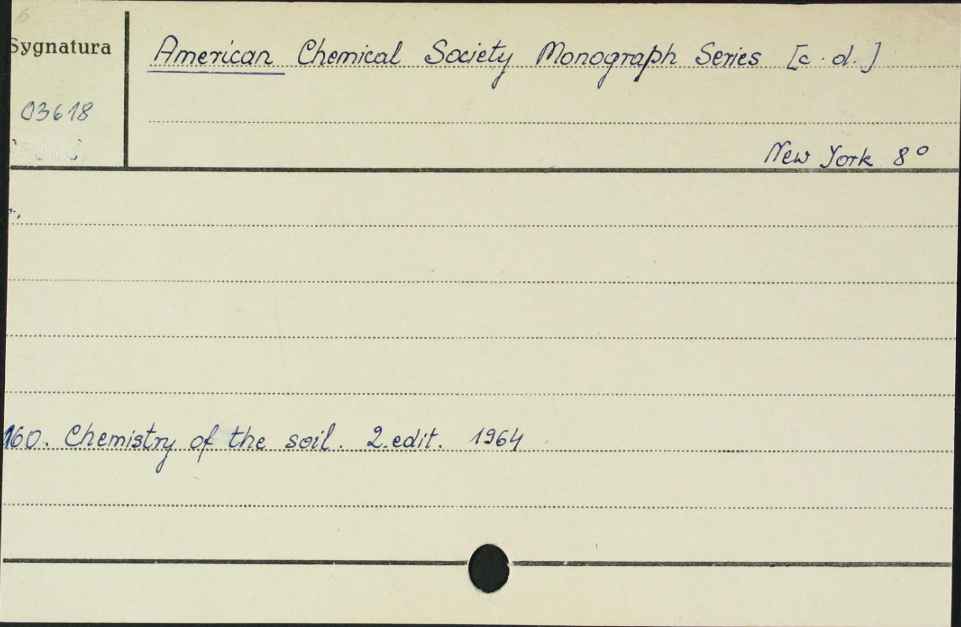 6
Sygnatura
American Chemical Society Monograph Series [c.d.]
03618
New York 8°
160. Chemistry of the soil. 2.edit. 1964